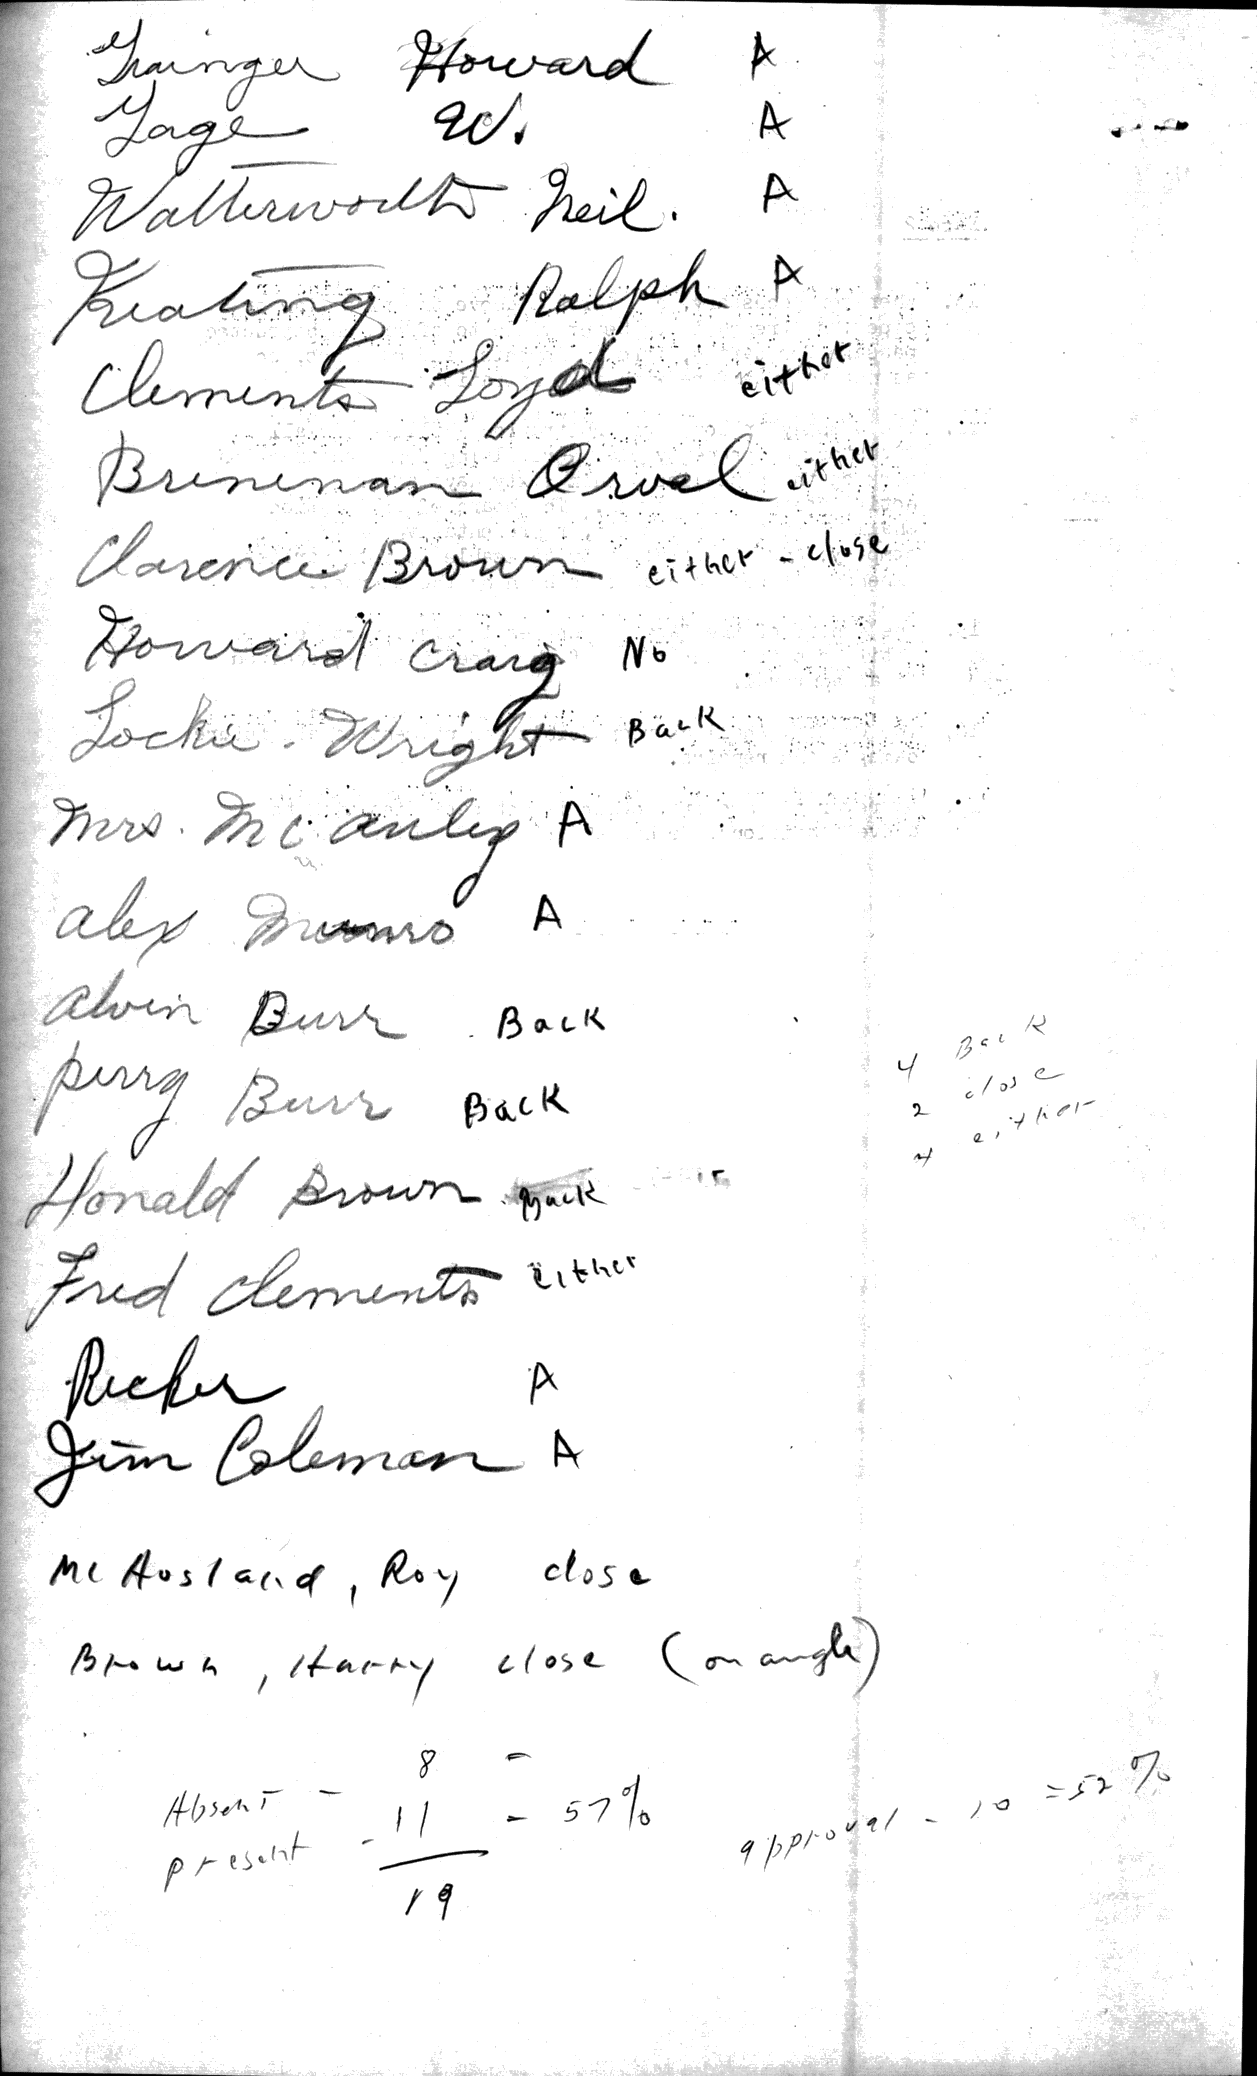 Grainger Howard A
Gage W. A
Walterworth Neil. A
Keating Ralph A
Clements Loyd either
Breneman Orval either
Clarence Brown either - close
Howard Craig No
Lockie. Wright Back
Mrs. McCauley A
Alex Munro A
Alvin Burr Back
Perry Burr Back
Honald Brown Back
Fred Clements either
Recker A
Jim Coleman A
McAusland, Roy close
Brown, Harry close (on angle)
4 Back
2 close
4 either
Absent - 8 -
present - 11 - 57%
19
approval - 10 = 52%